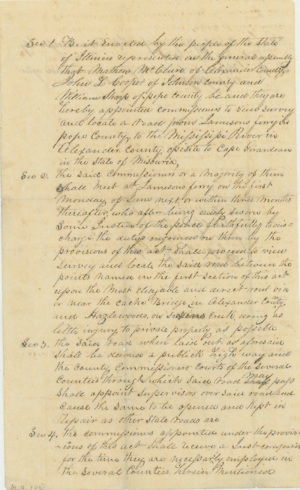 Sec 1. Be it enacted by the people of the State
of Illinois represented in the General Assembly
that Mathew McClure of Alexander County
John L. Cooper of Johnson County and
William Sharp of pope County be and they are
hereby appointed commissioners to view survey
and locate a road from Lamsons ferry in
pope County, to the Mississippi River in
Alexander County opposite to Cape Girardeau
in the State of Missouria,
Sec 2. The said Commissioners or a Majority of them
shall meet at Lamsons ferry on the first
Monday of June next or within three Months
thereafter, who after being duly sworn by
Some Justice of the peace faithfully to dis-
charge the duties enjoined on them by the
provisions of this act Shall proceed to view
Survey and locate the said road between the
points named in the first section of this act
upon the Most eligable and direct rout via
or near the Cache Bridge in Alexander County
and Hazlewoods, on creek, doing as
little injury to private property as possible
Sec 3. The State road when laid out as aforesaid
Shall be deemed a publick high way and
the County Commissioners Courts of the Several
Counties through which Said road may pass
Shall appoint Supervisors over said road and
Cause the Same to be opened and kept in
repair as other State roads are
Sec 4. The commissioners appointed under the provis-
ions of this act shall receive a Just compensation
for the time they are necessarily employed in
the Several Counties therein Mentioned